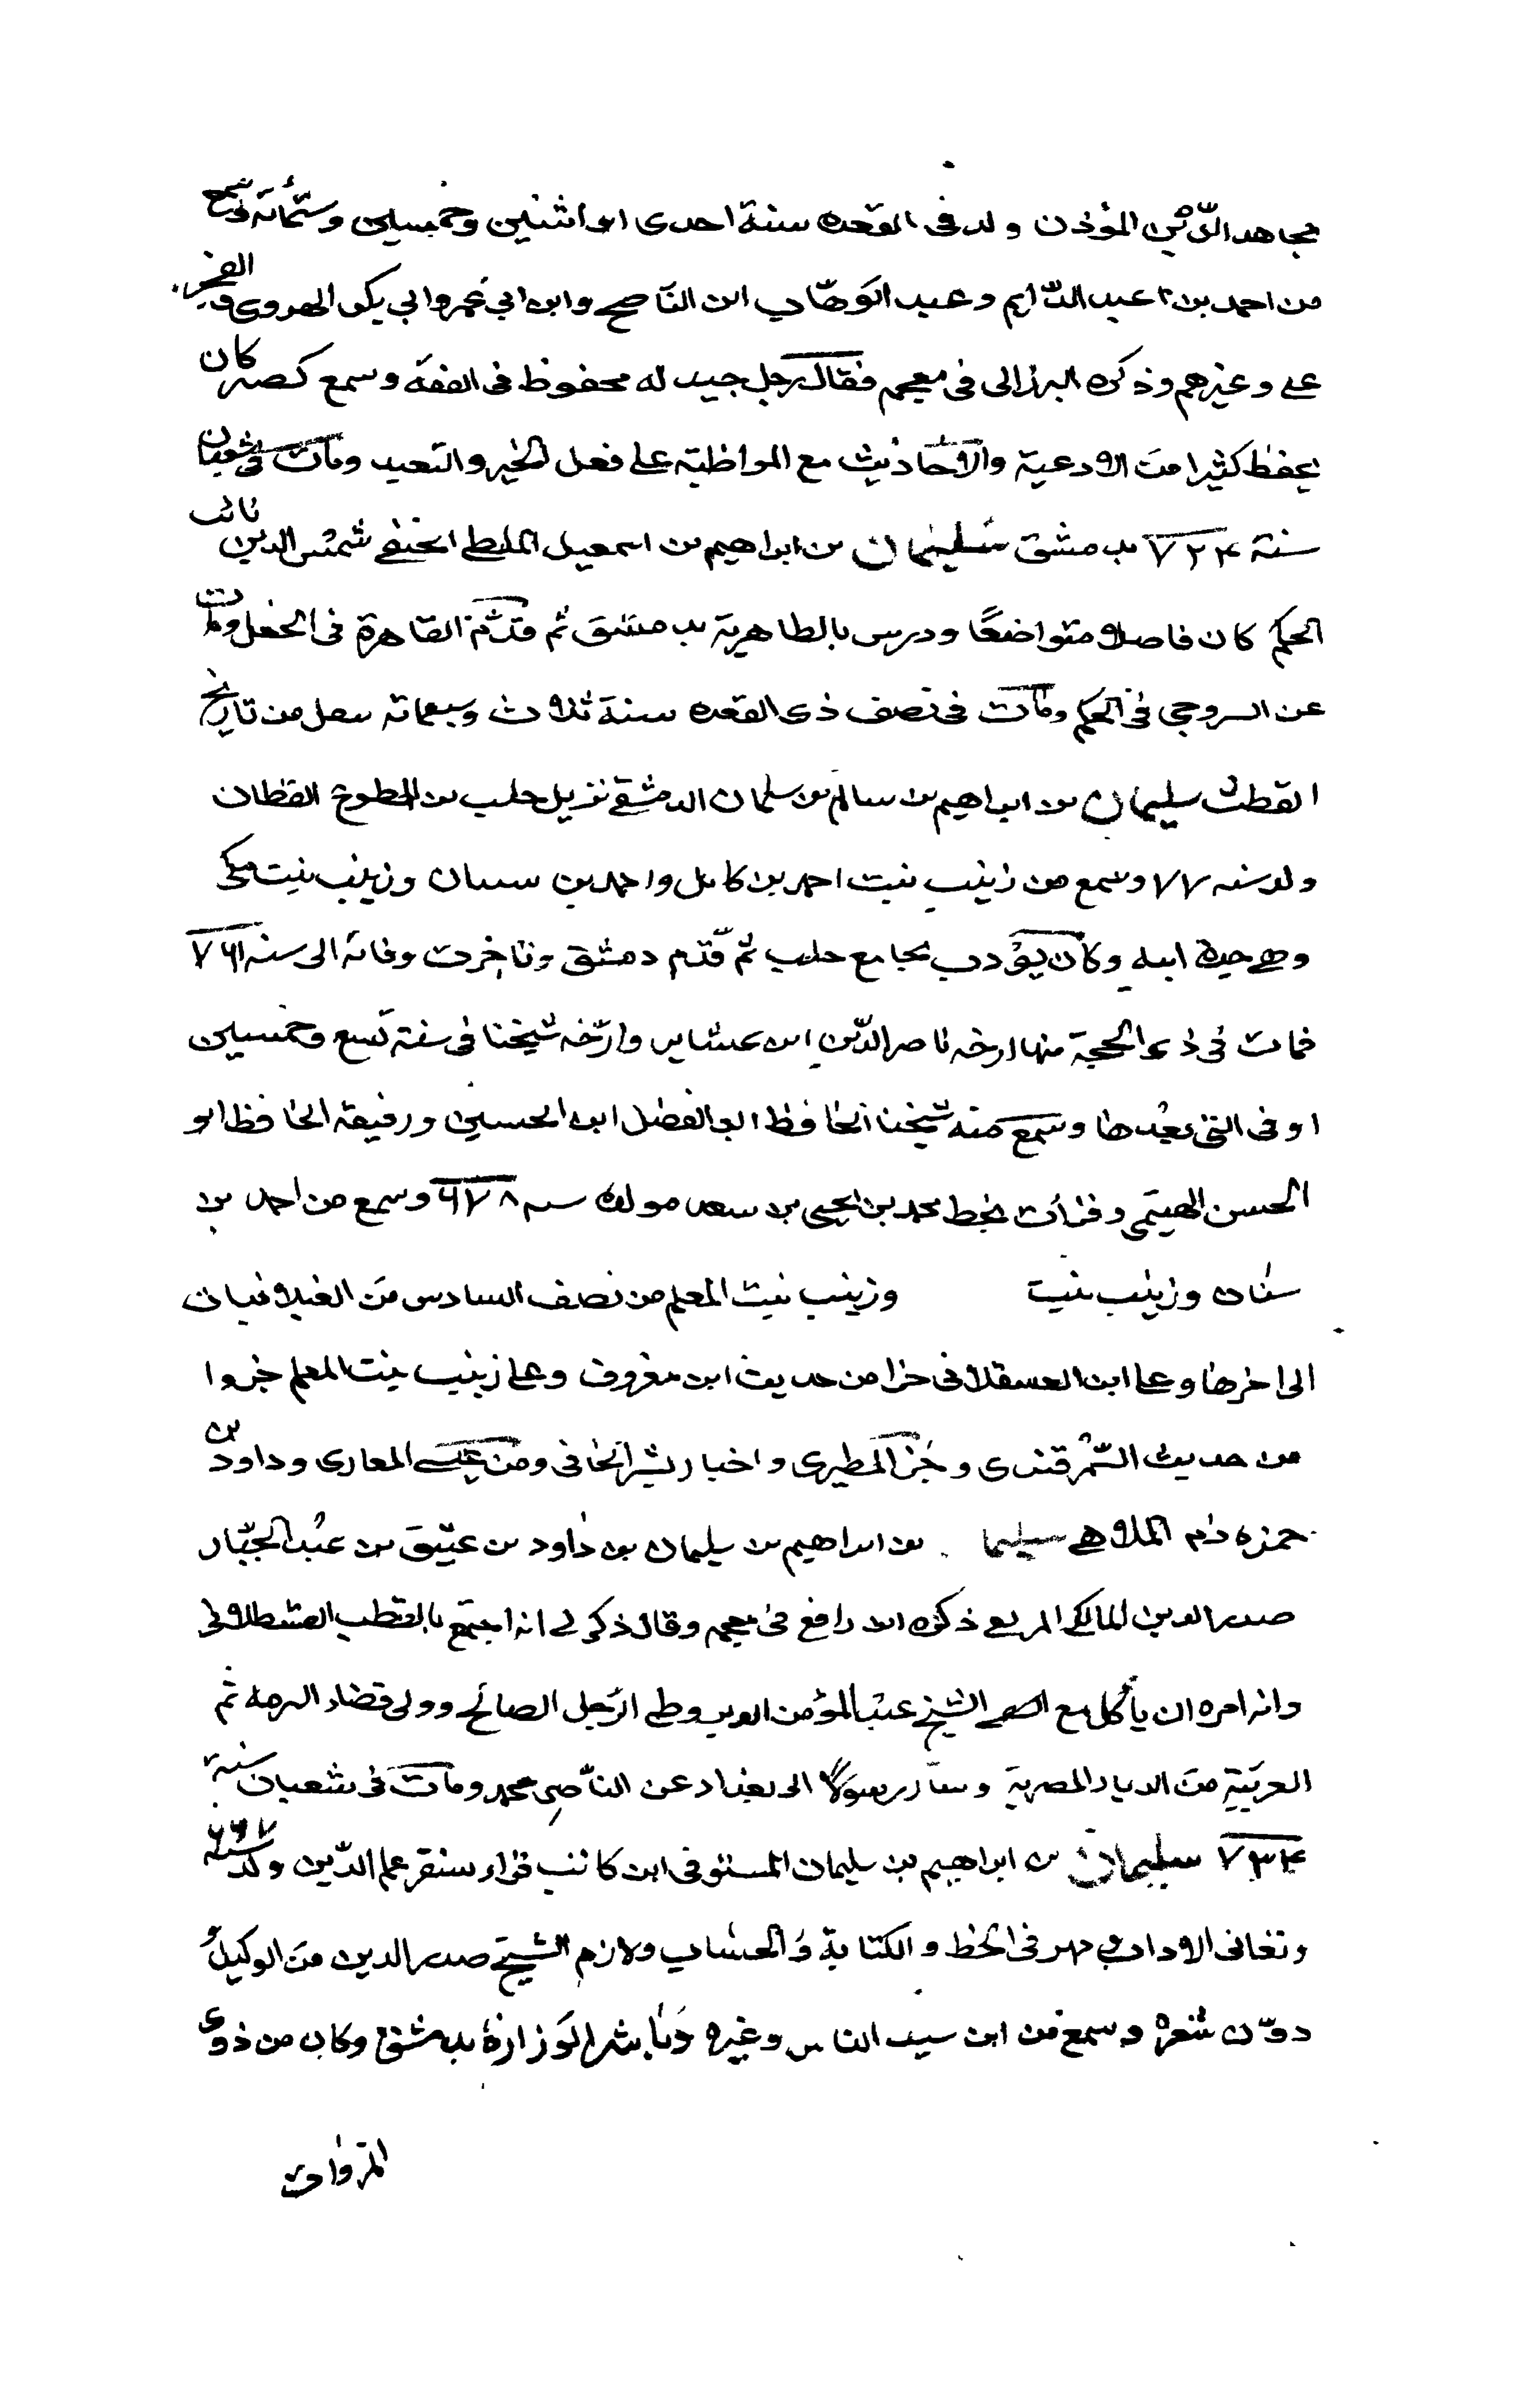 مجاهد الدّين المؤذن ولد فى القعده سنة احدى او اثنين وخمسين وستمأئة وسمع
من احمد بن عبد الدّايم وعبد الوهّاب ابن الناصح وابن ابي عمر وابي بكر الهروى والفخر
على وغيرهم وذكره البرزالى فى معجمه فقال رجل جيد له محفوظ فى الفقه وسمع كان
يحفظ كثيرا من الادعية والاحاديث مع المواظبة على فعل الخير والتعبد ومات فى شعبان
سنة ٧٢٤ بدمشق سليمان بن ابراهيم بن اسمعيل الملطى الحنفى شمس الدين نائب
الحكم كان فاضلا متواضعًا ودرس بالظاهرية بدمشق ثم قدم القاهرة فى الجفل وناب
عن السروجى فى الحكم ومات فى نصف ذى القعده سنة ثلاث وسبعمائه نقل من تاريخ
القطب سليمان بن ابراهيم بن سالم بن سلمان الدمشقى نزيل حلب بن المطوع القطان
ولد سنه ٧٧ وسمع من زينب بنت احمد بن كامل واحمد بن سنان وزينب بنت مكى
وهى جدة ابيه وكان يؤدب بجامع حلب ثم قدم دمشق وتاخرت وفاته الى سنه ٧٦١
فمات فى ذى الحجة منها ارخه ناصر الدّين ابن عشاير وارّخه شيخنا فى سنة تسع وخمسين
او فى التى بعدها وسمع منه شيخنا الحافظ ابو الفضل ابن الحسين ورفيقه الحافظ ابو
الحسن الهيتمى وقرأت بخط محمد بن يحيى بن سعد مولده سنه ٦٧٨ وسمع من احمد بن
سنان وزينب بنت وزينب بنت المعلم من نصف السادس من الغيلانيات
الى اخرها وعلى ابن العسقلانى جزا من حديث ابن معروف وعلى زينب بنت المعلم جزوا
من حديث السّمرقندى وجزء المطيرى واخبار بشر الحافى ومن عيسى المعارى وداود بن
حمزه ذم الملاهى سليما بن ابراهيم بن سليمان بن داود بن عتيق بن عبد الجبّار
صدر الدين المالكى ذكره ابن رافع فى معجمه وقال ذكر لى انه اجتمع بالقطب القسطلانى
وانه امره ان يأكل مع الشيخ عبد المؤمن الرجل الصالح وولى قضاء ثم
الغربيّة من الديار المصرية وسار رسولًا الى بغداد عن النّاصر محمد ومات فى شعبان سنة
٧٣٤ سليمان بن ابراهيم بن سليمان المستوفى ابن كاتب قرا سنقر علم الدّين ولد سنة ٦٦٧
وتعانى الاداب ومهر فى الخط والكتابة والحساب ولازم الشيخ صدر الدين من الوكيل و
دوّن شعره وسمع من ابن سيد الناس وغيره وباشر الوزارة بدمشق وكان من ذوى
المروات